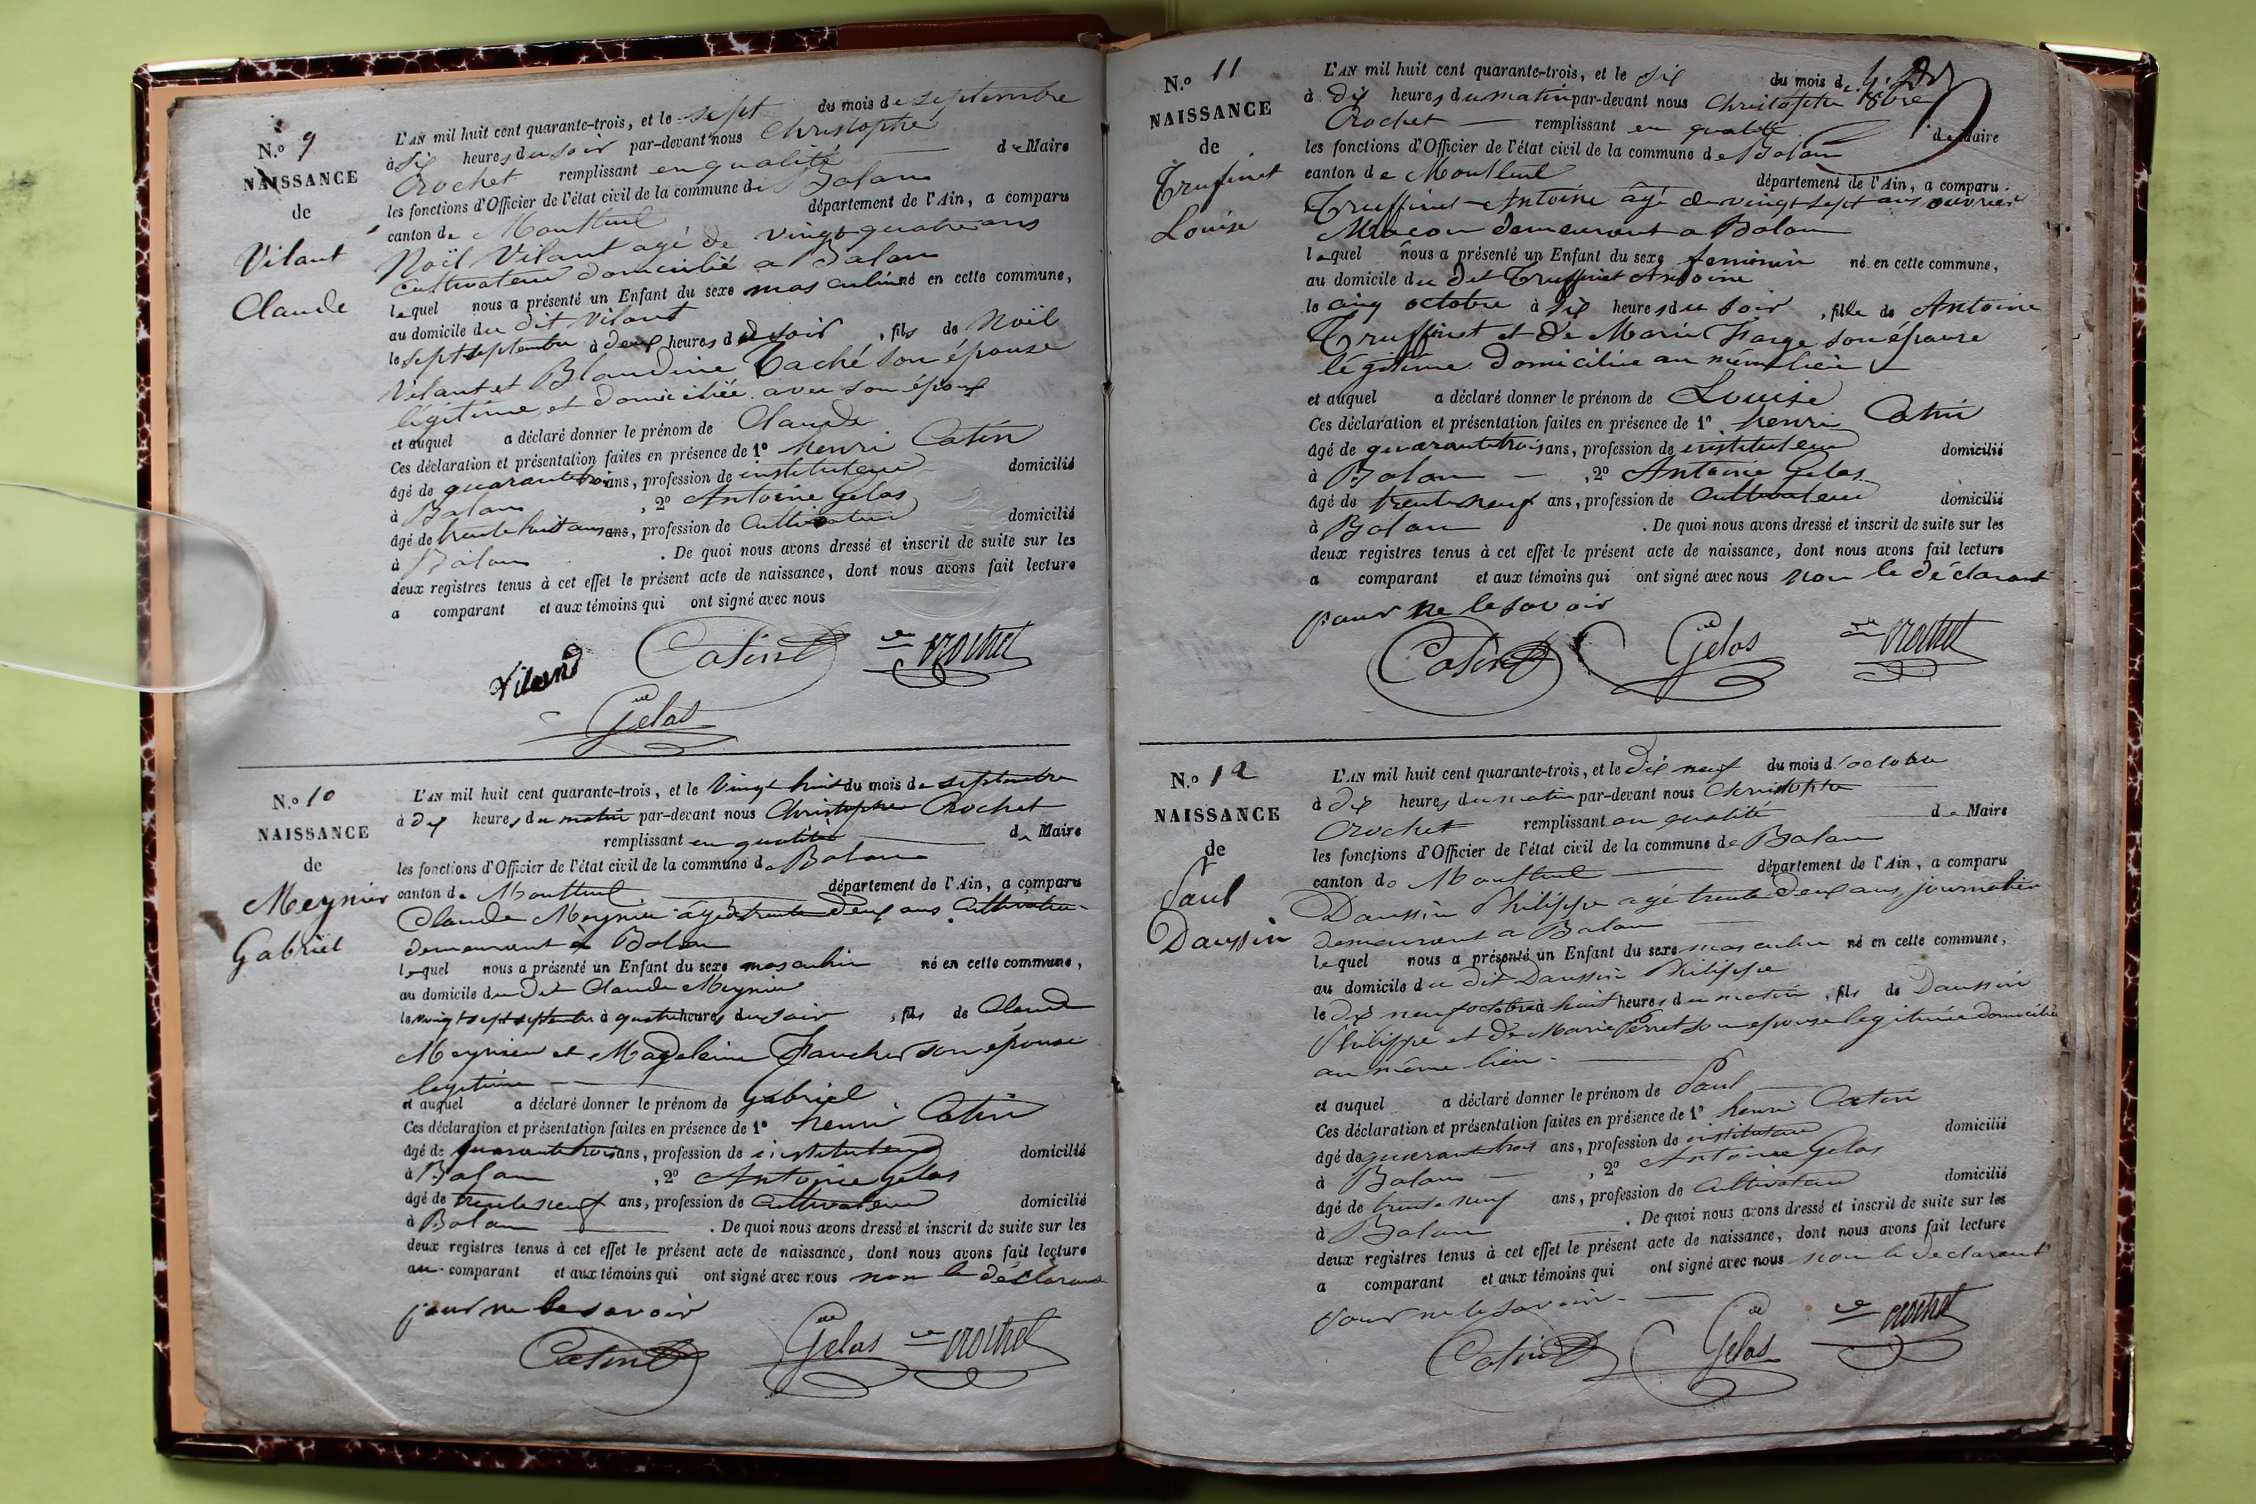 N.° 9
NAISSANCE
de
Vilant
Claude
L'AN mil huit cent quarante-trois, et le sept du mois de septembre
à six heures du soir par-devant nous Christophe
Crochet remplissant en qualité de Maire
les fonctions d'Officier de l'état civil de la commune de Balan
canton de Montluel département de l'Ain, a comparu
Noël Vilant agé de vingt quatre ans
cultivateur domicilié a Balan
lequel nous a présenté un Enfant du sexe masculin né en cette commune,
au domicile du dit Vilant
le sept septembre à deux heures du soir, fils de Noël
Vilant et Blandine Taché son épouse
légitime et domiciliée avec son époux
et auquel a déclaré donner le prénom de Claude
Ces déclaration et présentation faites en présence de 1° henri Catin
âgé de quarante trois ans, profession de instituteur domicilié
à Balan, 2° Antoine Gelas
âgé de trente huit ans ans, profession de Cultivateur domicilié
à Balan. De quoi nous avons dressé et inscrit de suite sur les
deux registres tenus à cet effet le présent acte de naissance, dont nous avons fait lecture
a comparant et aux témoins qui ont signé avec nous
Viland Catin Crochet
Gelas
N.° 10
NAISSANCE
de
Meynier
Gabriel
L'AN mil huit cent quarante-trois, et le vingt huit du mois de septembre
à dix heures du matin par-devant nous Christophe Crochet
remplissant en qualité de Maire
les fonctions d'Officier de l'état civil de la commune de Balan
canton de Montluel département de l'Ain, a comparu
Claude Meynier âgé de trente deux ans Cultivateur
demeurant à Balan
lequel nous a présenté un Enfant du sexe masculin né en cette commune,
au domicile du dit Claude Meynier
le vingt sept septembre à quatre heures du soir, fils de Claude
Meynier et Magdeleine Faucher son épouse
legitime
et auquel a déclaré donner le prénom de Gabriel
Ces déclaration et présentation faites en présence de 1° henri Catin
âgé de quarante trois ans, profession de instituteur domicilié
à Balan, 2° Antoine Gelas
âgé de trente neuf ans, profession de Cultivateur domicilié
à Balan. De quoi nous avons dressé et inscrit de suite sur les
deux registres tenus à cet effet le présent acte de naissance, dont nous avons fait lecture
au comparant et aux témoins qui ont signé avec nous non le déclarant
pour ne le savoir
Catin Gelas Crochet
N.° 11
NAISSANCE
de
Trufinet
Louise
L'AN mil huit cent quarante-trois, et le six du mois d. 8bre
à dix heures du matin par-devant nous Christophe
Crochet remplissant en qualité de Maire
les fonctions d'Officier de l'état civil de la commune de Balan
canton de Montluel département de l'Ain, a comparu
Truffinet Antoine âgé de vingt sept ans ouvrier
Macon demeurant a Balan
lequel nous a présenté un Enfant du sexe feminin né en cette commune,
au domicile du dit Truffinet Antoine
le cinq octobre à six heures du soir, fille de Antoine
Truffinet et de Marie Farge son épouse
légitime domiciliée au même lieu
et auquel a déclaré donner le prénom de Louise
Ces déclaration et présentation faites en présence de 1° henri Catin
âgé de quarante trois ans, profession de instituteur domicilié
à Balan, 2° Antoine Gelas
âgé de trente neuf ans, profession de Cultivateur domicilié
à Balan. De quoi nous avons dressé et inscrit de suite sur les
deux registres tenus à cet effet le présent acte de naissance, dont nous avons fait lecture
a comparant et aux témoins qui ont signé avec nous non le déclarant
pour ne le savoir
Catin Gelas Crochet
N.° 12
NAISSANCE
de
Paul
Daussin
L'AN mil huit cent quarante-trois, et le dix neuf du mois d'octobre
à dix heures du matin par-devant nous Christophe
Crochet remplissant en qualité de Maire
les fonctions d'Officier de l'état civil de la commune de Balan
canton de Montluel département de l'Ain, a comparu
Daussin Philippe agé trente deux ans, journalier
demeurant a Balan
lequel nous a présenté un Enfant du sexe masculin né en cette commune,
au domicile du dit Daussin Philippe
le dix neuf octobre à huit heures du matin, fils de Daussin
Philippe et de Marie Perret son epouse legitimée domiciliée
au même lieu
et auquel a déclaré donner le prénom de Paul
Ces déclaration et présentation faites en présence de 1° henri Catin
âgé de quarante trois ans, profession de instituteur domicilié
à Balan, 2° Antoine Gelas
âgé de trente neuf ans, profession de Cultivateur domicilié
à Balan. De quoi nous avons dressé et inscrit de suite sur les
deux registres tenus à cet effet le présent acte de naissance, dont nous avons fait lecture
a comparant et aux témoins qui ont signé avec nous non le declarant
pour ne le savoir
Catin Gelas Crochet